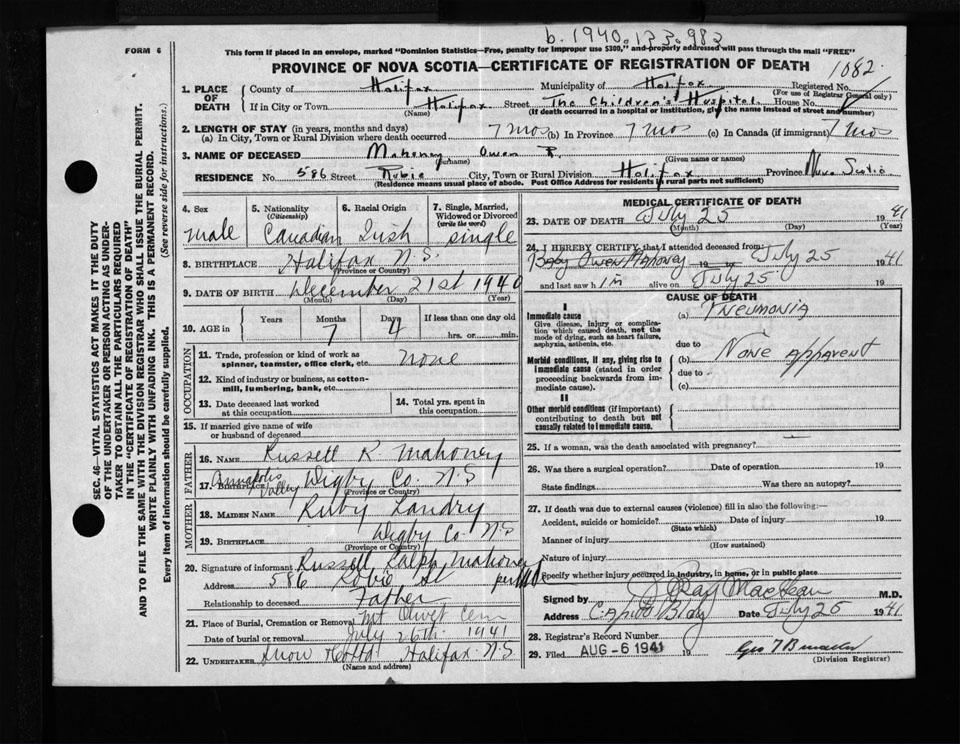 b. 1940.133.982
FORM 6
This form if placed in an envelope, marked "Dominion Statistics—Free, penalty for improper use $300," and properly addressed will pass through the mail "FREE"
PROVINCE OF NOVA SCOTIA—CERTIFICATE OF REGISTRATION OF DEATH
1082
1. PLACE OF DEATH
County of Halifax Municipality of Halifax Registered No.
(For use of Registrar General only)
If in City or Town Halifax Street The Children's Hospital House No.
(Name) (If death occurred in a hospital or institution, give the name instead of street and number)
2. LENGTH OF STAY (in years, months and days)
(a) In City, Town or Rural Division where death occurred 7 mos (b) In Province 7 mos (c) In Canada (if immigrant) 7 mos
3. NAME OF DECEASED Mahoney Owen R.
(Surname) (Given name or names)
RESIDENCE No. 586 Street Robie City, Town or Rural Division Halifax Province Nova Scotia
(Residence means usual place of abode. Post Office Address for residents in rural parts not sufficient)
4. Sex
male
5. Nationality
(Citizenship)
Canadian
6. Racial Origin
Irish
7. Single, Married, Widowed or Divorced
(write the word)
single
8. BIRTHPLACE Halifax N.S.
(Province or Country)
9. DATE OF BIRTH December 21st 1940
(Month) (Day) (Year)
10. AGE in
Years Months Days If less than one day old
7 4 hrs. or min.
OCCUPATION
11. Trade, profession or kind of work as spinner, teamster, office clerk, etc. none
12. Kind of industry or business, as cotton-mill, lumbering, bank, etc.
13. Date deceased last worked at this occupation
14. Total yrs. spent in this occupation
15. If married give name of wife or husband of deceased
FATHER
16. NAME Russell R. Mahoney
17. BIRTHPLACE Annapolis Valley Digby Co. N.S
(Province or Country)
MOTHER
18. MAIDEN NAME Ruby Landry
19. BIRTHPLACE Digby Co. N.S
(Province or Country)
20. Signature of informant Russell Ralph Mahoney
Address 586 Robie St
Relationship to deceased Father
21. Place of Burial, Cremation or Removal Mt Olivet Cem
Date of burial or removal July 26th 1941
22. UNDERTAKER Snow Halifax N.S
(Name and address)
MEDICAL CERTIFICATE OF DEATH
23. DATE OF DEATH July 25 1941
(Month) (Day) (Year)
24. I HEREBY CERTIFY that I attended deceased from:
Baby Owen Mahoney 19 to July 25 1941
and last saw him alive on July 25 19
CAUSE OF DEATH
I
Immediate cause
Give disease, injury or complication which caused death, not the mode of dying, such as heart failure, asphyxia, asthenia, etc.
(a) Pneumonia
due to
Morbid conditions, if any, giving rise to immediate cause (stated in order proceeding backwards from immediate cause).
(b) None Apparent
due to
(c)
II
Other morbid conditions (if important) contributing to death but not causally related to immediate cause.
25. If a woman, was the death associated with pregnancy?
26. Was there a surgical operation? Date of operation 19
State findings Was there an autopsy?
27. If death was due to external causes (violence) fill in also the following:—
Accident, suicide or homicide? Date of injury 19
(State which)
Manner of injury
(How sustained)
Nature of injury
Specify whether injury occurred in industry, in home, or in public place
Signed by Ray M.D.
Address Date July 25 1941
28. Registrar's Record Number
29. Filed AUG -6 1941 19 Geo
(Division Registrar)
SEC. 46—VITAL STATISTICS ACT MAKES IT THE DUTY OF THE UNDERTAKER OR PERSON ACTING AS UNDERTAKER TO OBTAIN ALL THE PARTICULARS REQUIRED IN THE "CERTIFICATE OF REGISTRATION OF DEATH" AND TO FILE THE SAME WITH THE DIVISION REGISTRAR WHO SHALL ISSUE THE BURIAL PERMIT.
WRITE PLAINLY WITH UNFADING INK. THIS IS A PERMANENT RECORD.
Every item of information should be carefully supplied. (See reverse side for instructions.)